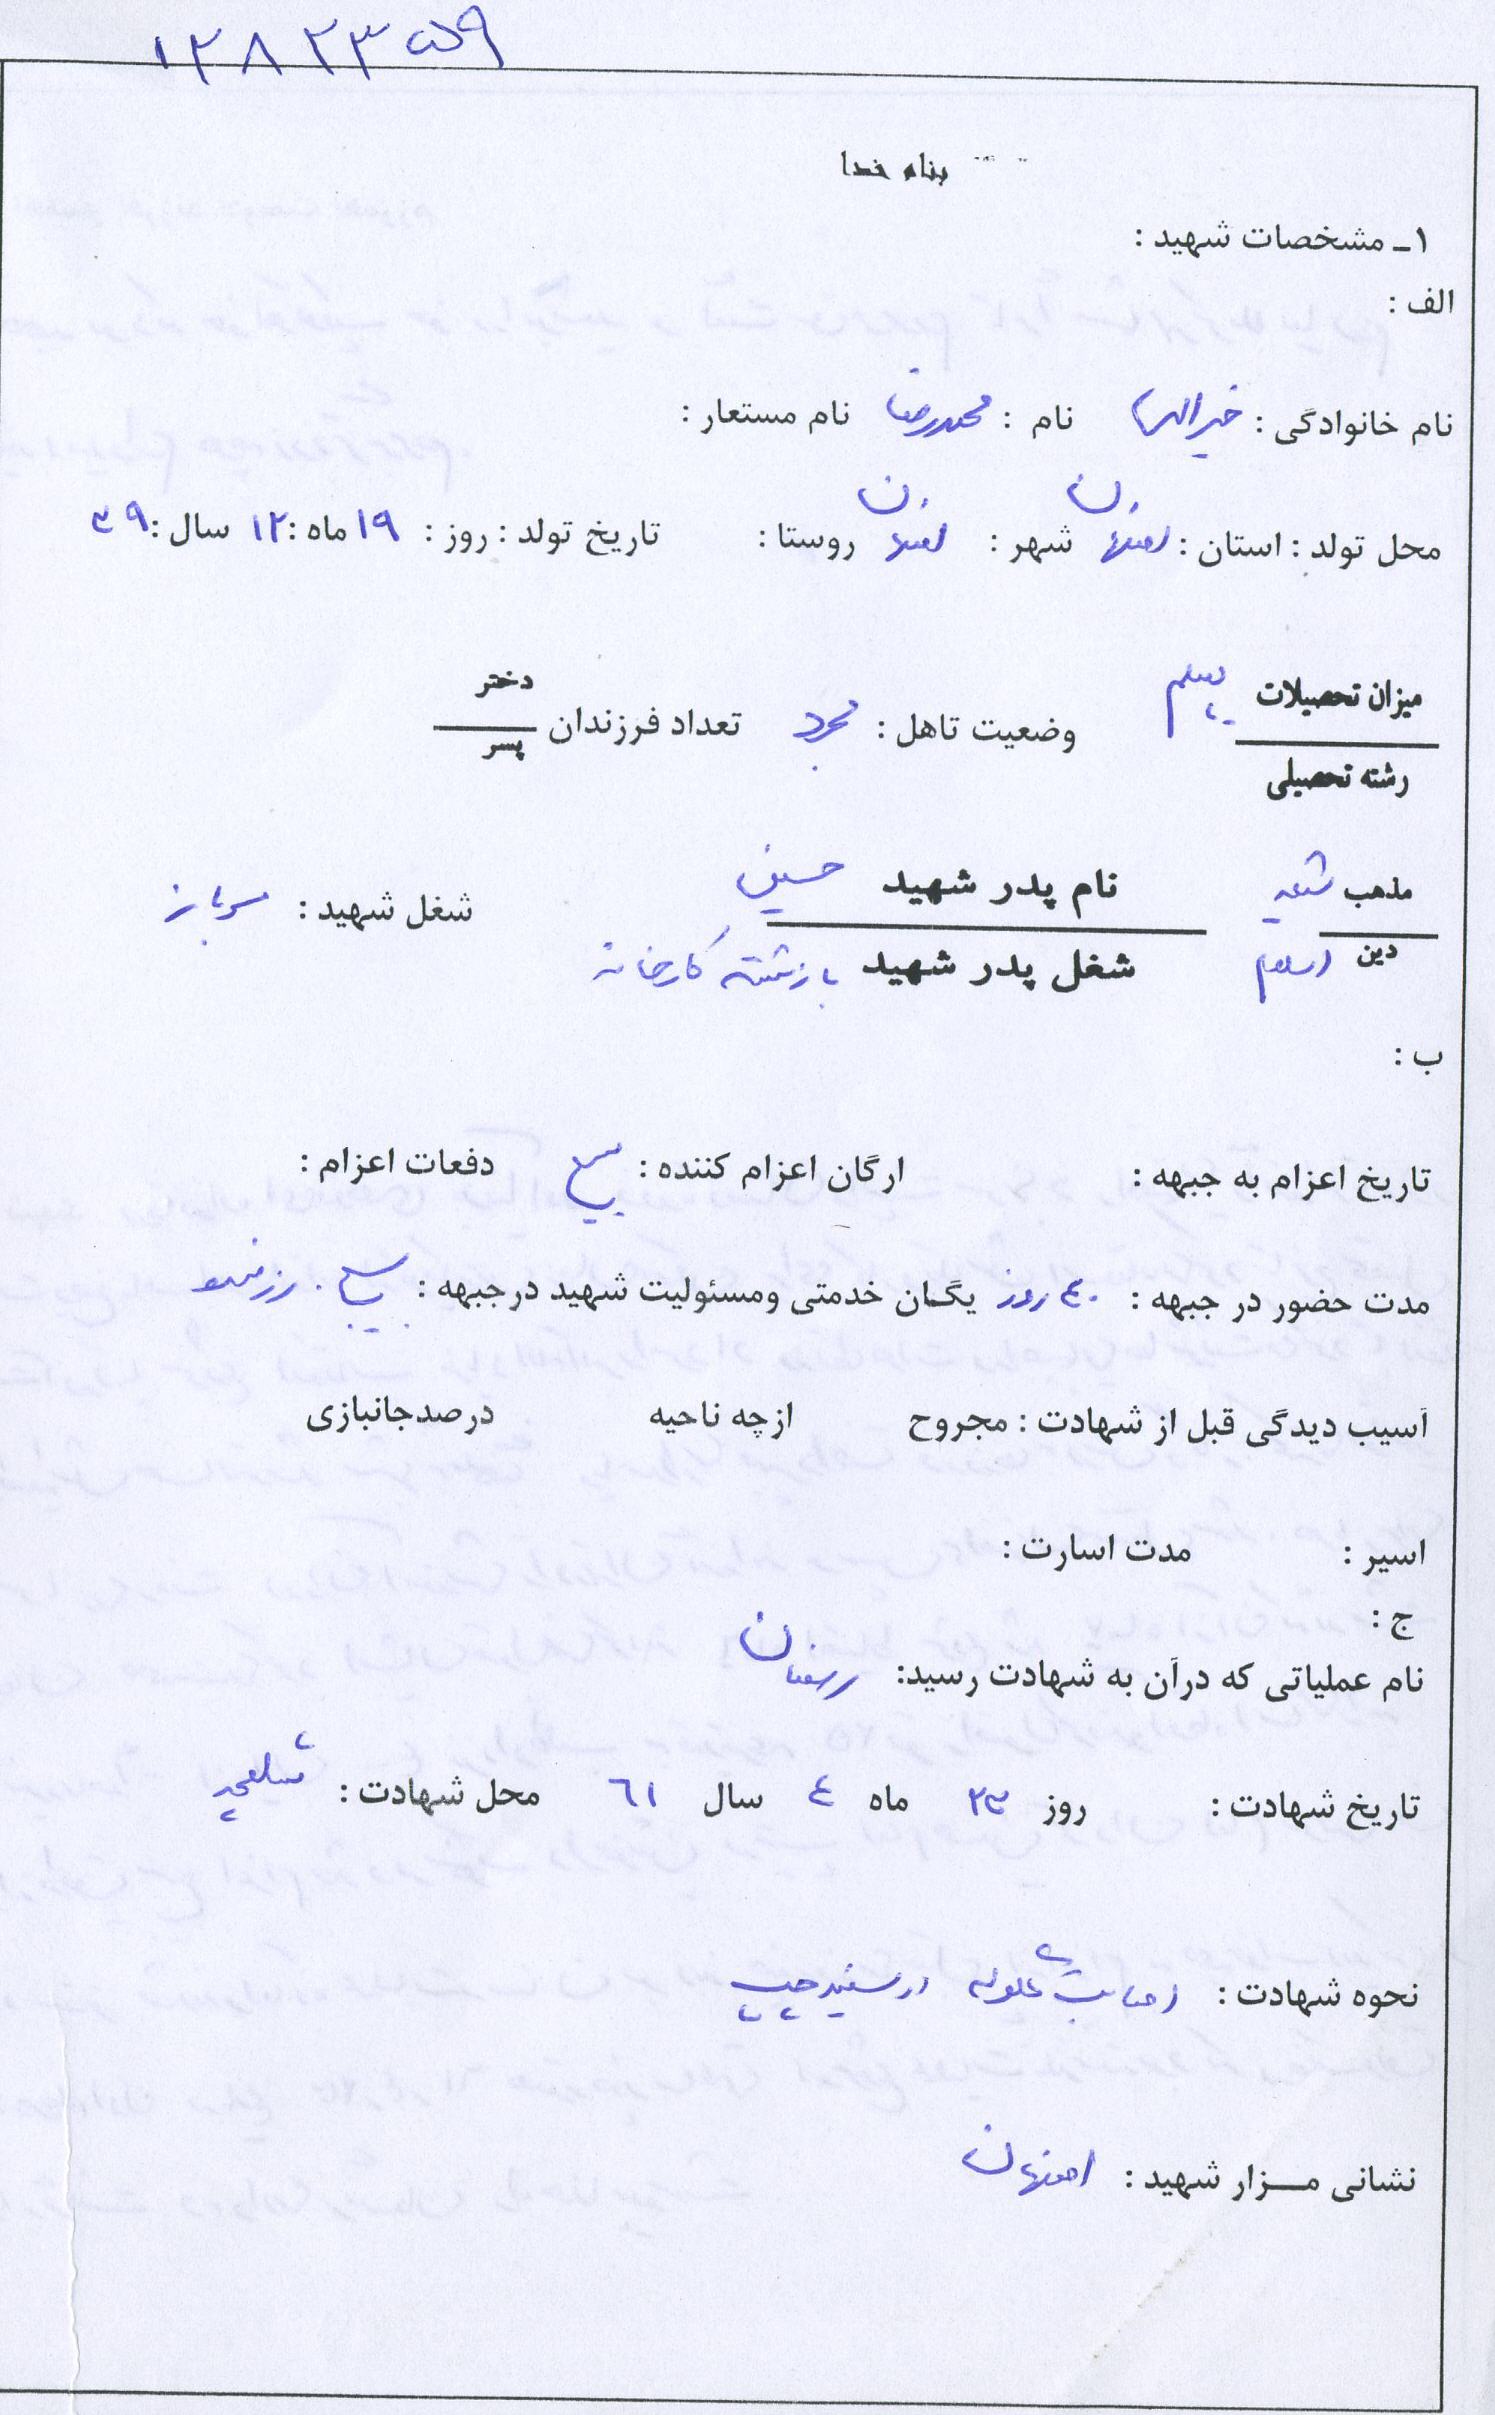 ۱۲۸۲۳۵۹
بنام خدا
۱ـ مشخصات شهید :
الف :
نام خانوادگی : خیراللهی نام : محمدرضا نام مستعار :
محل تولد : استان : اصفهان شهر : اصفهان روستا : تاریخ تولد : روز : ۱۹ ماه : ۱۲ سال : ۳۹
میزان تحصیلات دیپلم وضعیت تاهل : مجرد تعداد فرزندان دختر
رشته تحصیلی پسر
مذهب شیعه نام پدر شهید حسین شغل شهید : سرباز
دین اسلام شغل پدر شهید بازنشسته کارخانه
ب :
تاریخ اعزام به جبهه : ارگان اعزام کننده : بسیج دفعات اعزام :
مدت حضور در جبهه : ۴۰ روز یگان خدمتی ومسئولیت شهید درجبهه : بسیج . رزمنده
آسیب دیدگی قبل از شهادت : مجروح ازچه ناحیه درصدجانبازی
اسیر : مدت اسارت :
ج :
نام عملیاتی که درآن به شهادت رسید: رمضان
تاریخ شهادت : روز ۲۳ ماه ٤ سال ٦۱ محل شهادت : شلمچه
نحوه شهادت : اصابت گلوله در سینه چپ
نشانی مـزار شهید : اصفهان